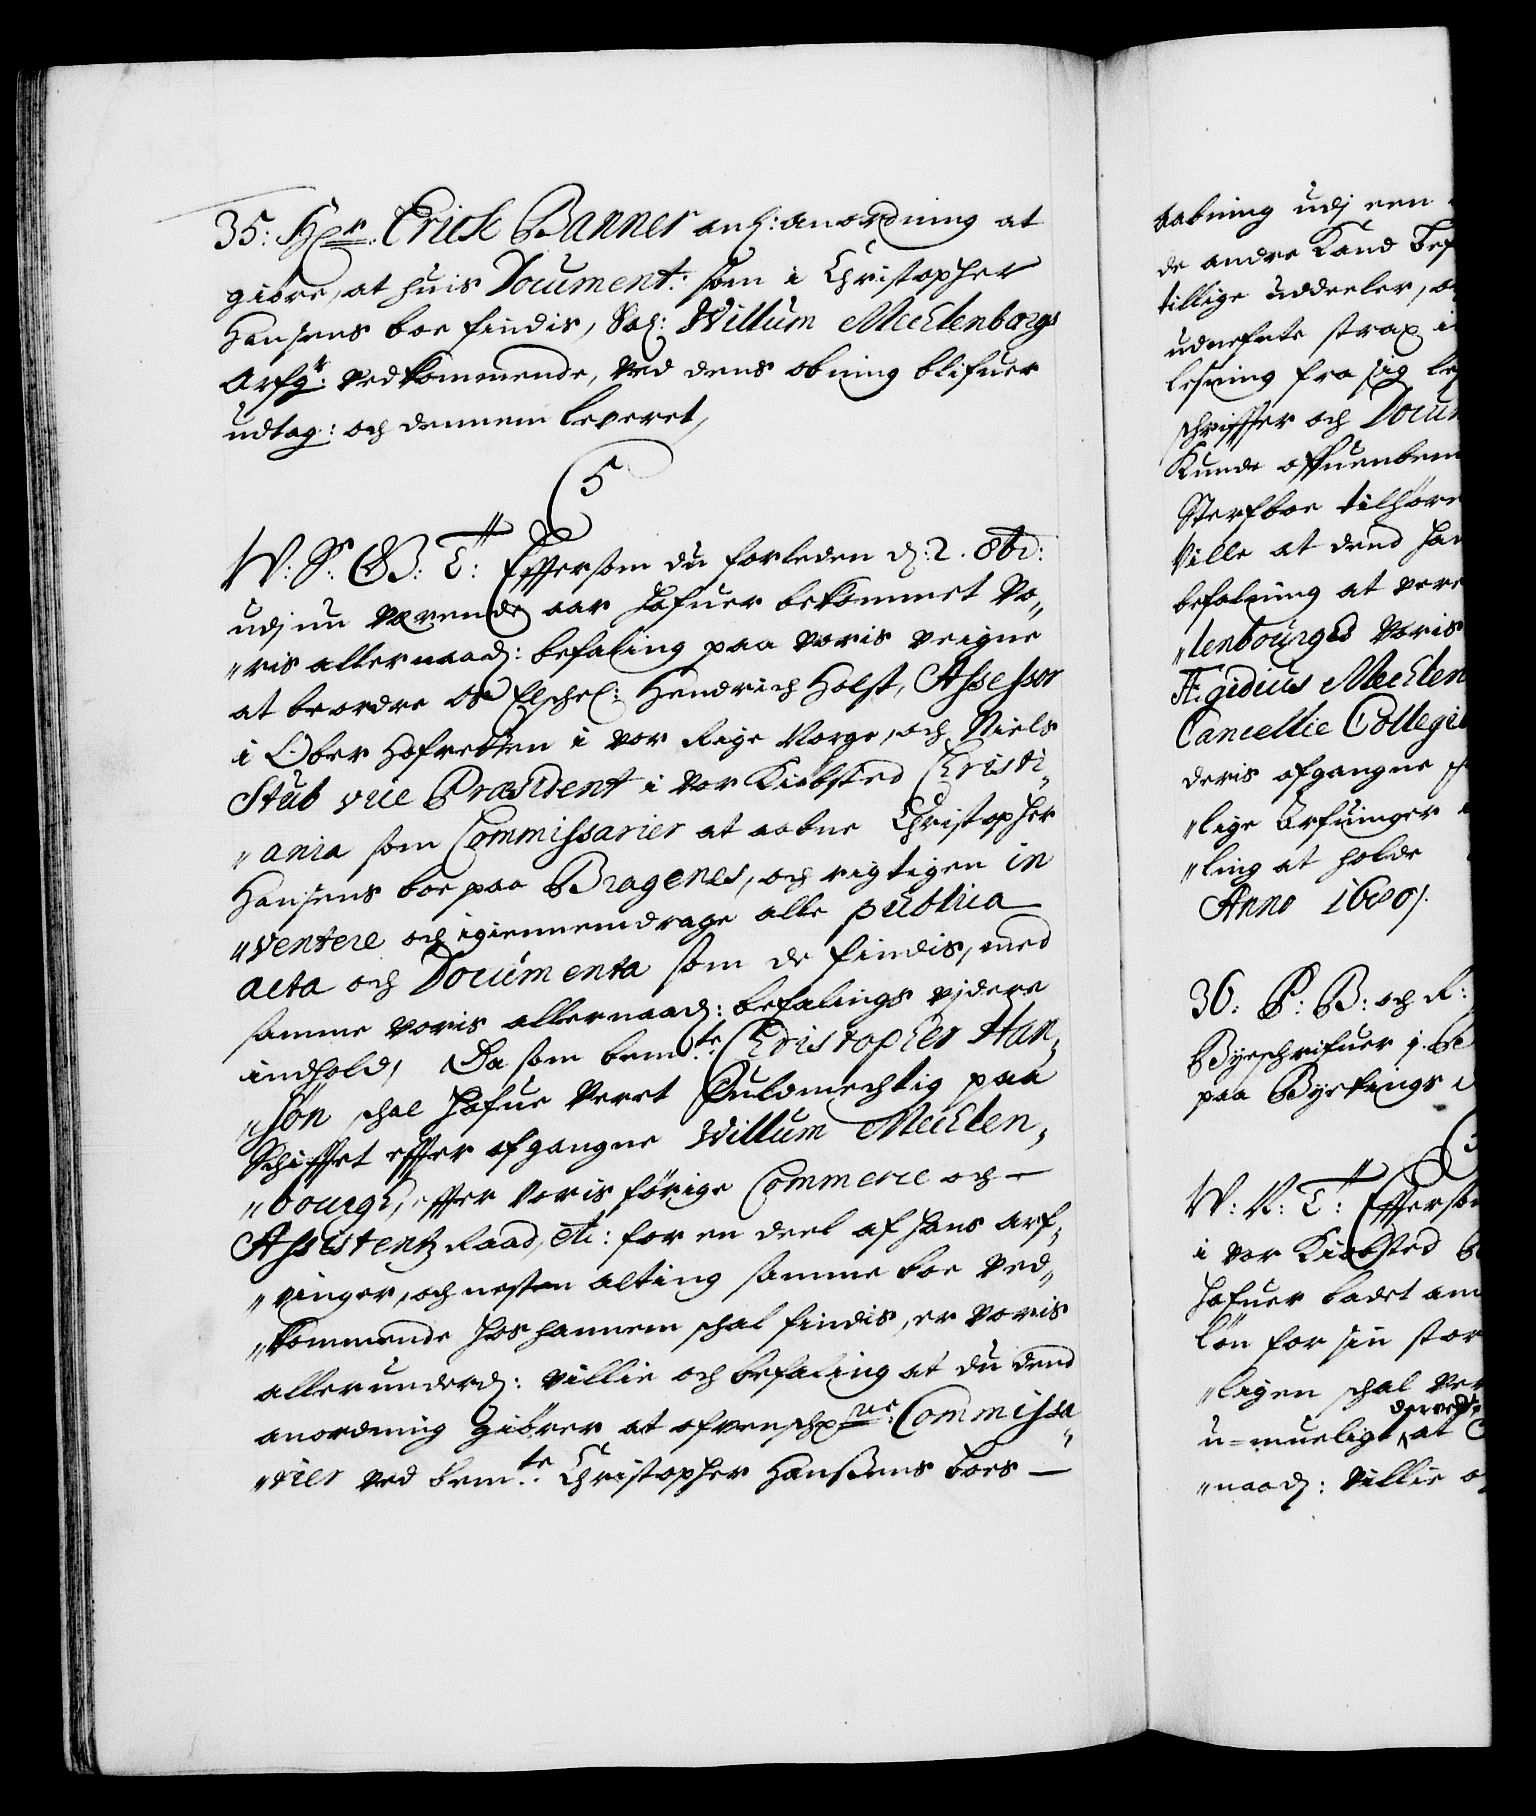 35: Hr. Erick Banner anl: anordning at
giöre, at huis Document: som i Christopher
Hansens boe findis, Sal: Willum Mechlenborgs
Arfg: vedkommende, ved dens obning blifuer
udtag: och dennem leveret,
5
W: S: G: T: Eftersom du forleden d: 2. 8br:
udj nu værende aar hafuer bekommet Vo„
„ris allernaad: befaling paa voris veigne
at beordre os Elschel: Hendrich Holst, Assessor
i Ober Hofretten i vor Rige Norge, och Niels
Stub vice Præsident i vor Kiöbsted Christi„
„ania som Commissarier at aabne Christopher
Hansens boe paa Bragenes, och rigtigen in
„ventere och igiennemdrage alle publica
acta och Documenta som de findis, med
samme voris allernaad: befalings videre
indhold, Da som bemte: Christopher Han„
„sön schal hafue veret Fuldmechtig paa
Schiftet efter afgangne Willum Mechlen„
„bourgh, efter voris förige Commerce och
Assistentz Raad, etc: for en deel af hans arf„
„vinger, och nesten alting samme boe ved„
„kommende hos hannem schal findis, er voris
allerunderd: villie och befaling at du dend
anordning giörer at ofvenschrne: Commissa„
„rier ved bemte: Christopher Hansens boes
aabning udj een
de andre Kand bef
tillige uddeeler, o
udnefnte strax i
lesning fra sig le
schriffter och Docum
Kunde offuenbem
Sterfboe tilhöre
Ville at dend han
befalning at vere
„lenbourgs voris
Ægidius Mechlen
Cancellie Collegie
deris afgangne
„lige Arfuinger
„ling at holde
Anno 1680.
36: P: B: och R:
Byeschrifuer i Be
paa Byetings
W: N: T: Eftersom
i vor Kiöbsted
hafuer ladet an
lön for sin stor
„ligen schal ver
derved
u=mueligt at
„naad: Villie o